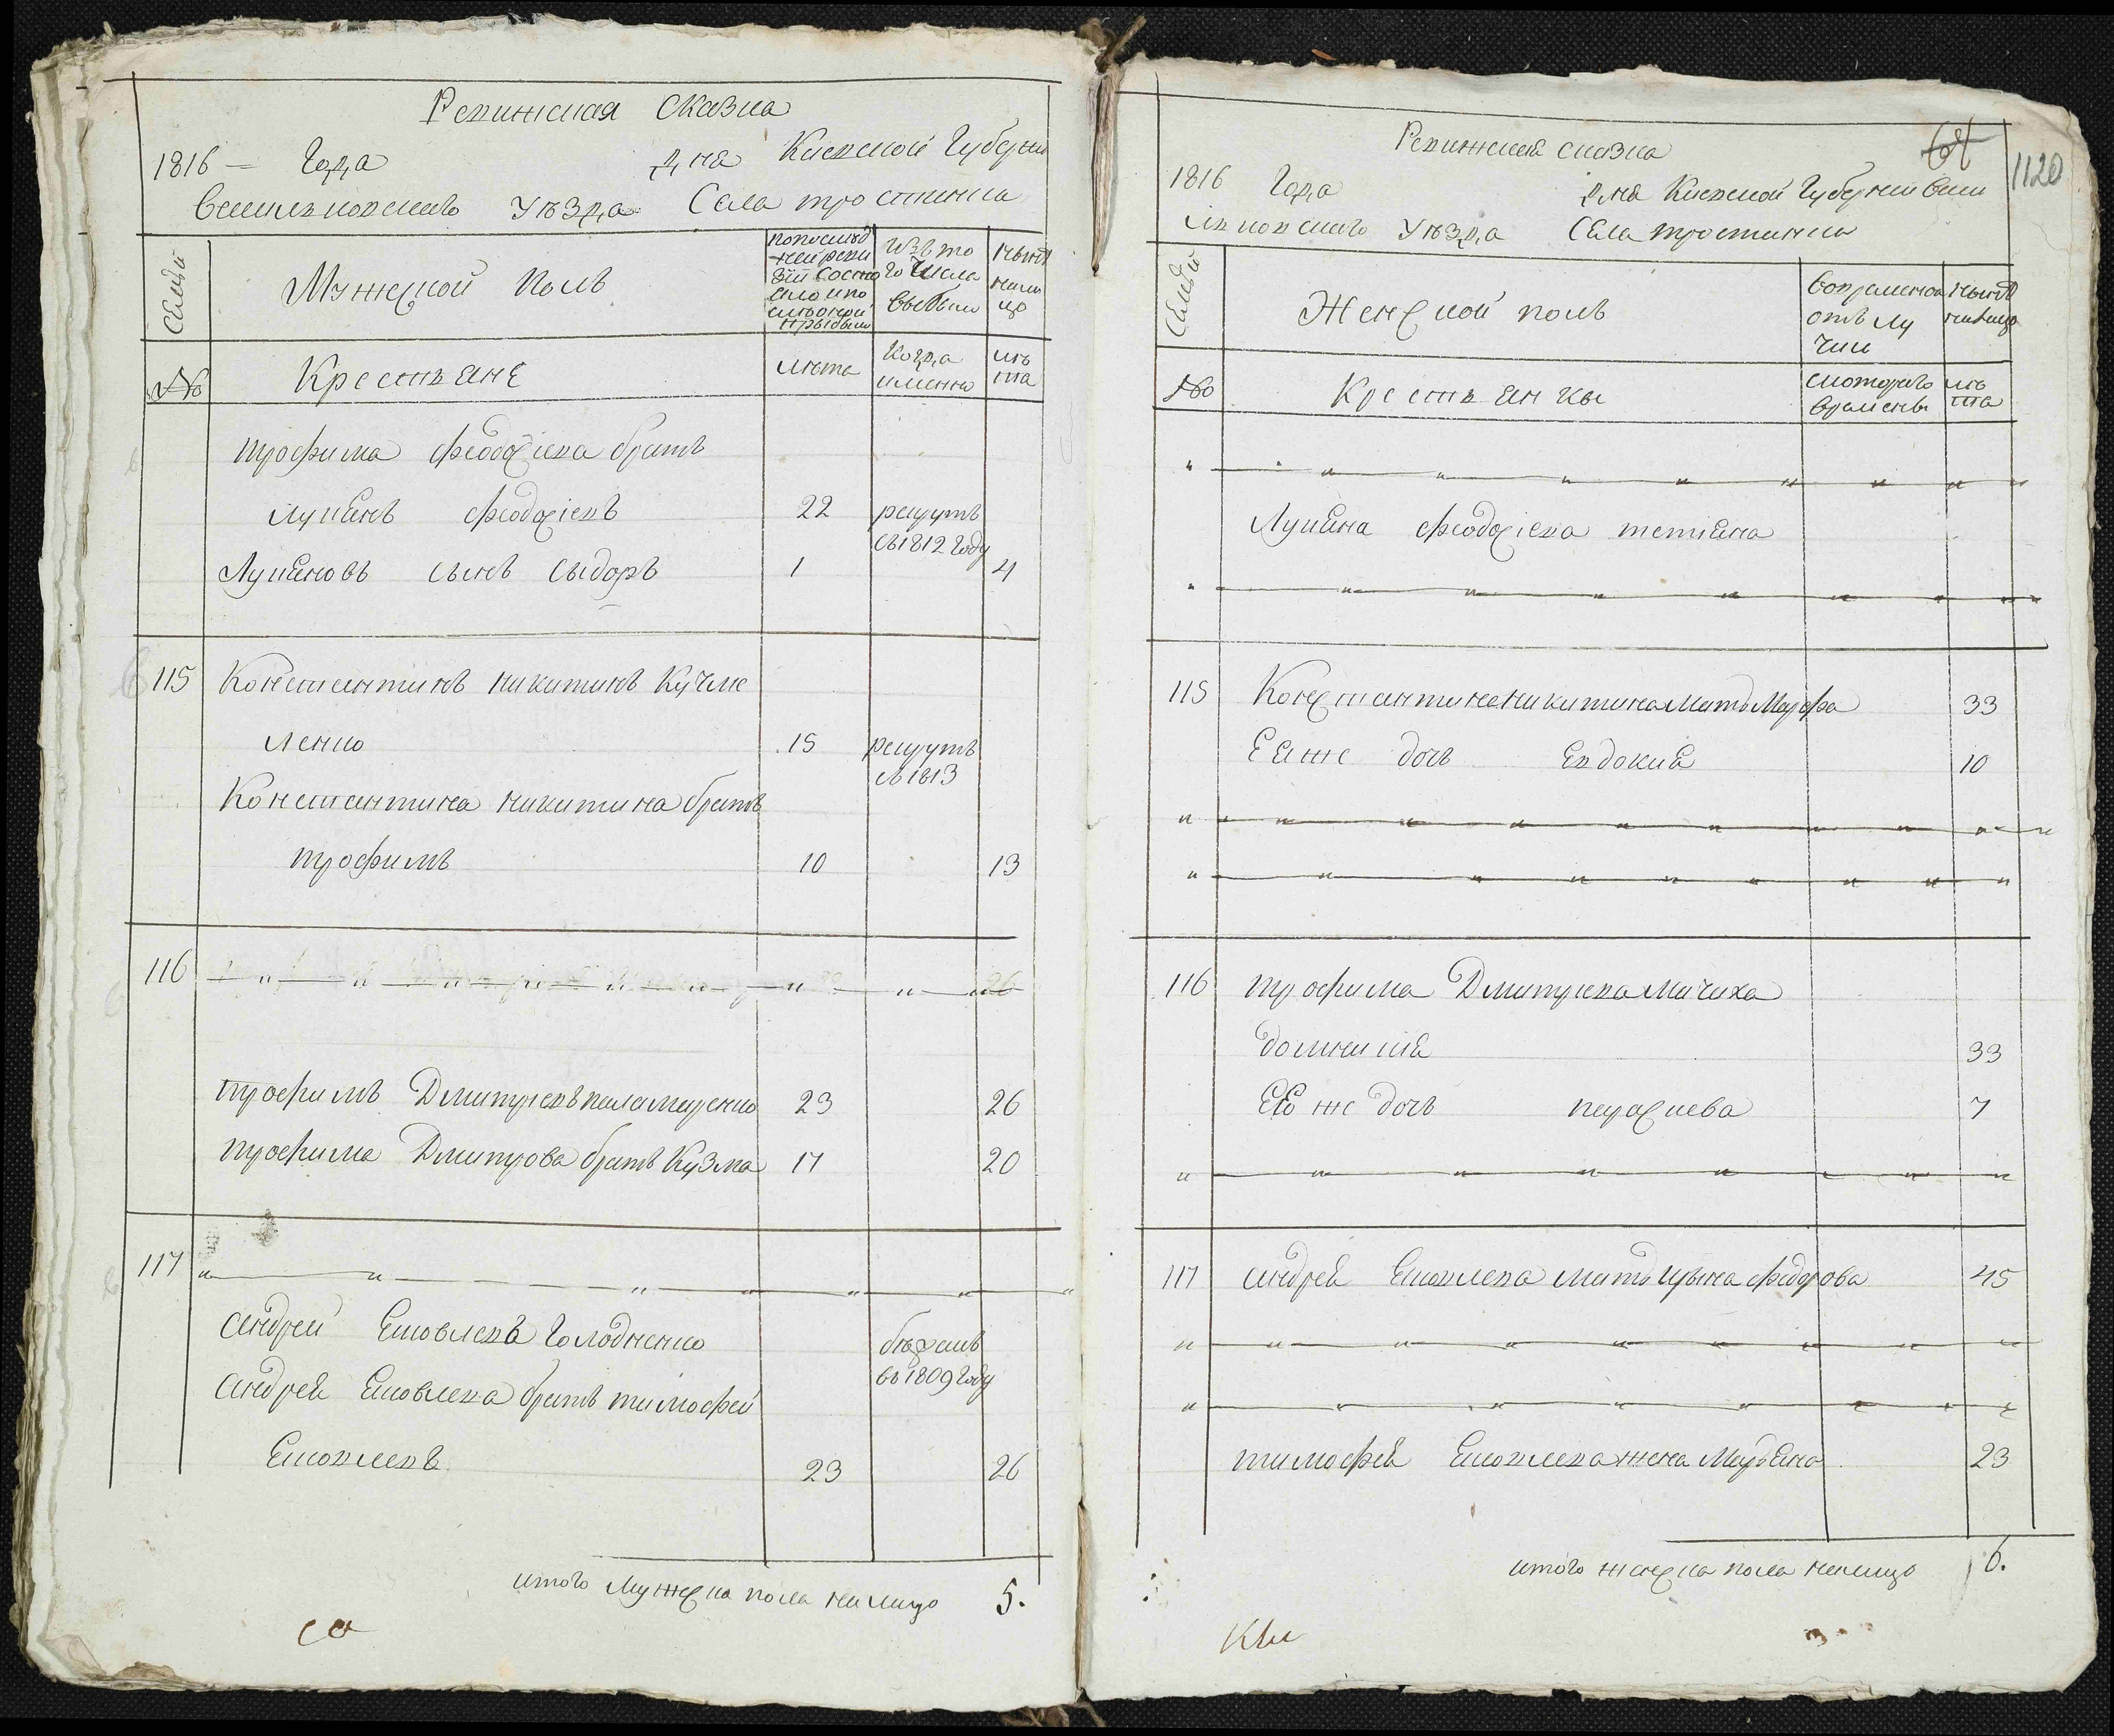 Ревижская сказка
1816 – Года дня Киевской Губерніи
Васильковского Уѣзда Села тростинка
Семьи
Мужеской полъ
попослѣд
ней реви
зіи состо
яло ипо
слѣоной
прибыли
Изъ то
го Числа
выбыли
Нынѣ
нали
цо
№
Крестьяне
лѣта
Когда
именно
лѣ
та
трофима феодосіева братъ
лукянъ феодосіевъ 22 рекрутъ
въ 1812 Году
Лукяновъ сынъ сыдоръ 1 4
115 Констянтинъ никитинъ Кучме
ленко 15 рекрутъ
въ 1813
Констянтина никитина братъ
трофимъ 10 13
116
трофимъ Дмитріевъ паламаренко 23 26
трофима Дмитрова братъ Кузма 17 20
117
андрей Яковлевъ Голодненко бѣжалъ
въ 1809 Году
андрея Яковлева братъ тимофей
Яковлевъ 23 26
итого мужеска пола налицо 5.
Ревижская сказка
64
1120
1816 Года дня Киевской Губерніи Васи
лковского Уѣзда Села тростинка
Семьи
Женской полъ
вовременой
отлу
чки
нынѣ
налицо
№
Крестьянки
скоторого
времены
лѣ
та
Лукяна феодосіева тетіяна
115 Констянтина никитина мать Марфа 33
Еяже дочь Евдокия 10
116 трофима Дмитриева мачиха
домникия 33
Ею же дочь параскева 7
117 андрея Яковлева мать Ирына федорова 45
тимофея Яковлева жена Марьяна 23
итого женска пола налицо 6.